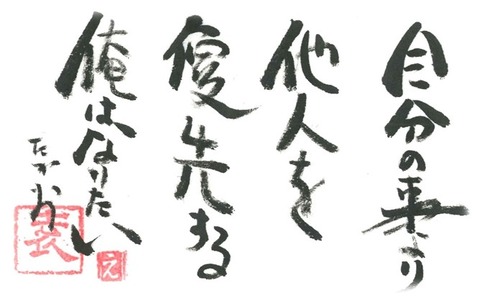 自分の事より
他人を
優先する
俺はなりたい
たかお
え